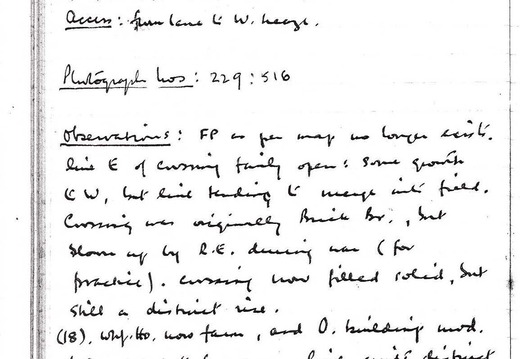 Access: from lane to W. hedge.
Photograph Nos: 229:516
Observations: FP as per map no longer exists.
line E of crossing fairly open: some growth
to W, but line tending to merge into field.
Crossing was originally Brick Br., but
blown up by R.E. during war (for
practice). Crossing now filled solid, but
still a distinct rise.
(18). Whse. now farm, and O. building mod.